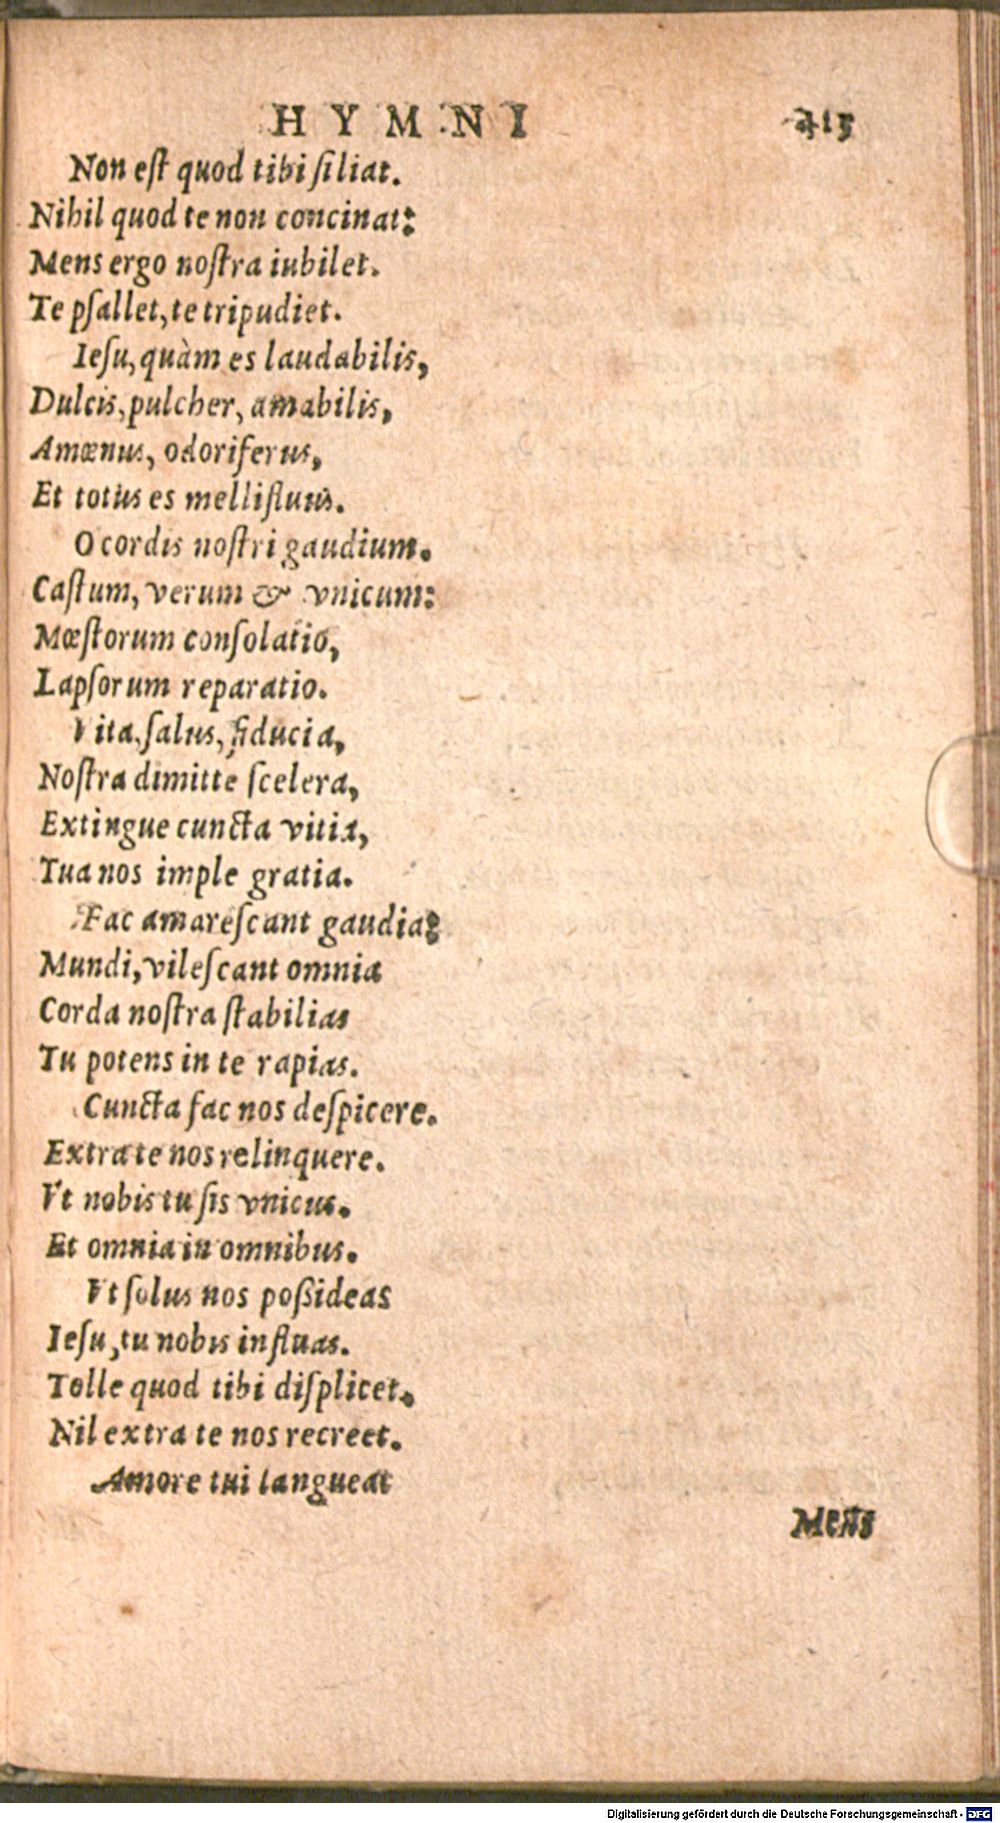 HYMNI 415
Non est quod tibi siliat.
Nihil quod te non concinat:
Mens ergo nostra iubilet.
Te psallet, te tripudiet.
Iesu, quàm es laudabilis,
Dulcis, pulcher, amabilis,
Amœnus, odoriferus,
Et totus es mellifluus.
O cordis nostri gaudium.
Castum, verum & vnicum:
Mœstorum consolatio,
Lapsorum reparatio.
Vita, salus, fiducia,
Nostra dimitte scelera,
Extingue cuncta vitia,
Tua nos imple gratia.
Fac amarescant gaudia:
Mundi, vilescant omnia
Corda nostra stabilias
Tu potens in te rapias.
Cuncta fac nos despicere.
Extra te nos relinquere.
Vt nobis tu sis vnicus.
Et omnia in omnibus.
Vt solus nos poßideas
Iesu, tu nobis influas.
Tolle quod tibi displicet,
Nil extra te nos recreet.
Amore tui langueat
Mens
Digitalisierung gefördert durch die Deutsche Forschungsgemeinschaft - DFG